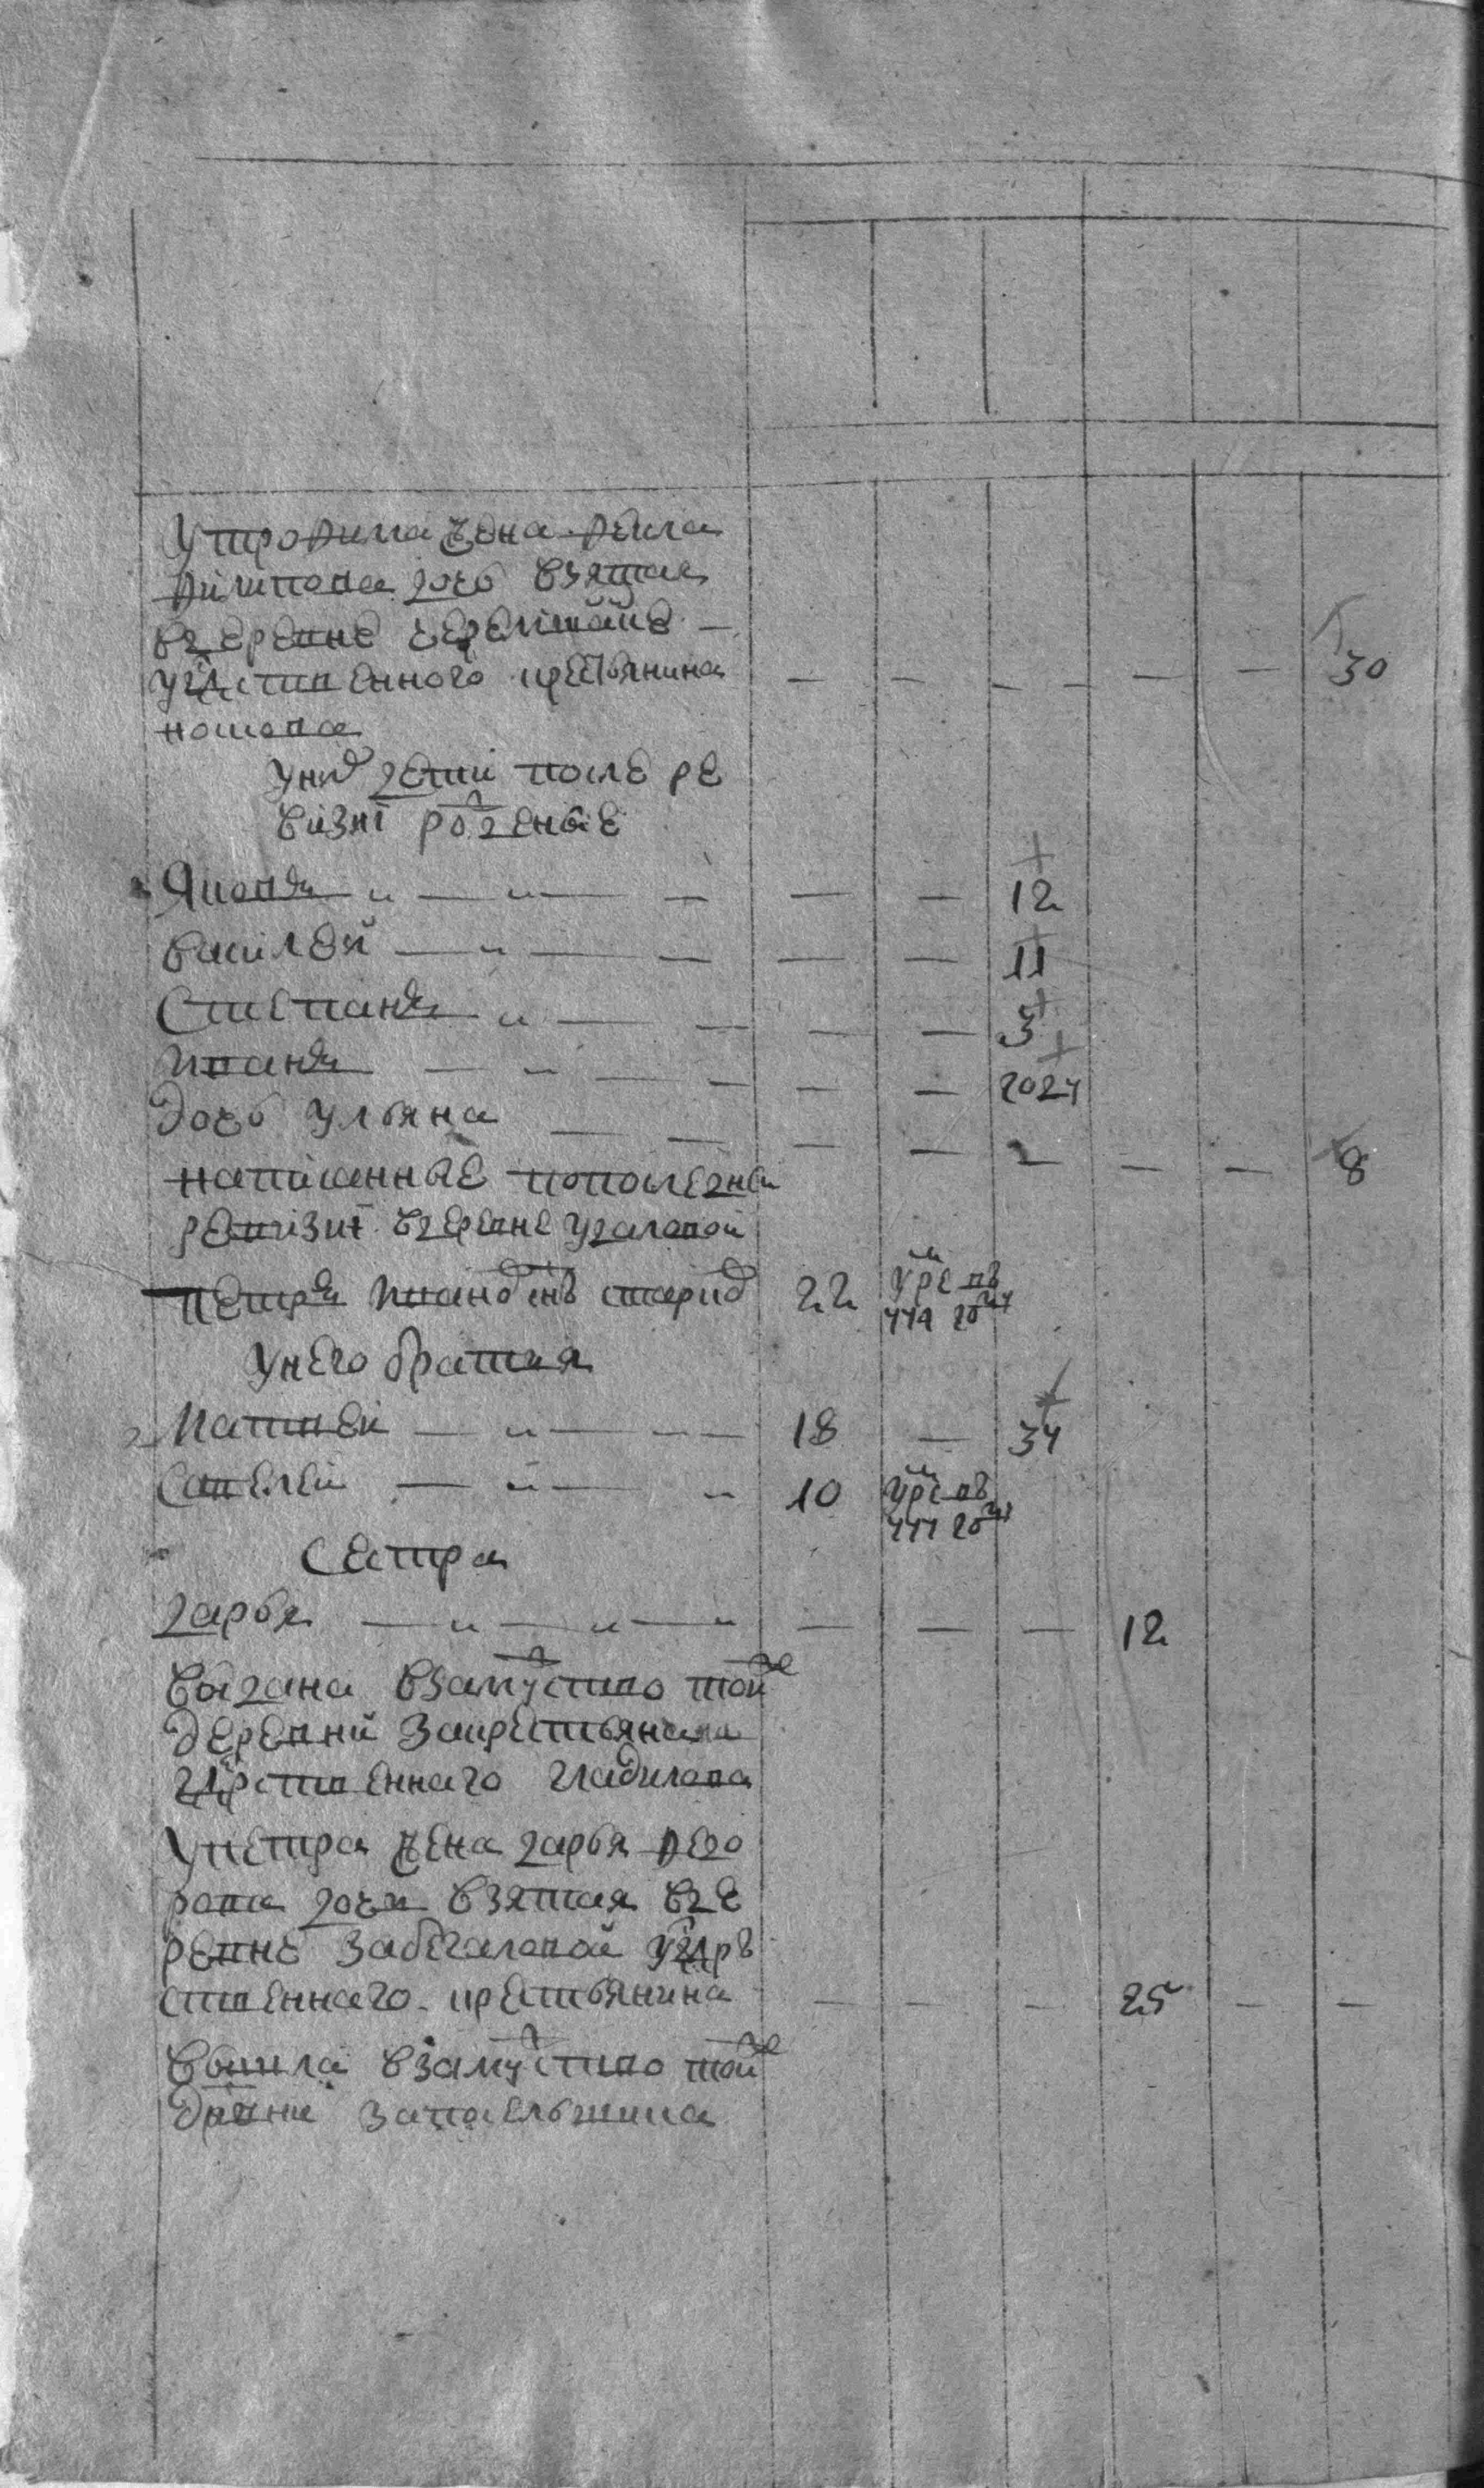 У трофима жена фекла
филипова дочь взятая
в деревне черемшаňке —
у г̃дственного крестьянина
нокова
У них дети после ре
визиї рожденые
Яковъ — „ — „ — — — — 12
василей — „ — — — — 11
Степанъ — „ — — — — 5
иванъ — „ — — — — году
Дочь ульяна — — — — — — — — 8
написанные по последнеи
ревизиї в деревне удаловой
петръ ивановъ старик 22 умре въ 779 году
У него братья
Матвей — „ — — — 18 — 34
Савелей — „ — „ 10 умре въ 777 году
Сестра
дарья — „ — „ — „ — — — 12
выдана в замужство той же
деревни за крестьянина
гд̃рственнаго гладилова
У петра жена дарья федо
рова дочь взятая в де
ревне забегаловой у гд̃рь
ственнаго крестьянина — — — 25 — —
вышла в замужство той же
дрвни за посельшика